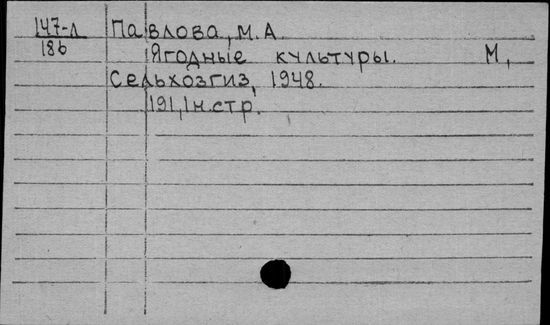 147-Л Павлова, М.А.
186 Ягодные культуры. М,
Сельхозгиз, 1948.
191, 1н.стр.